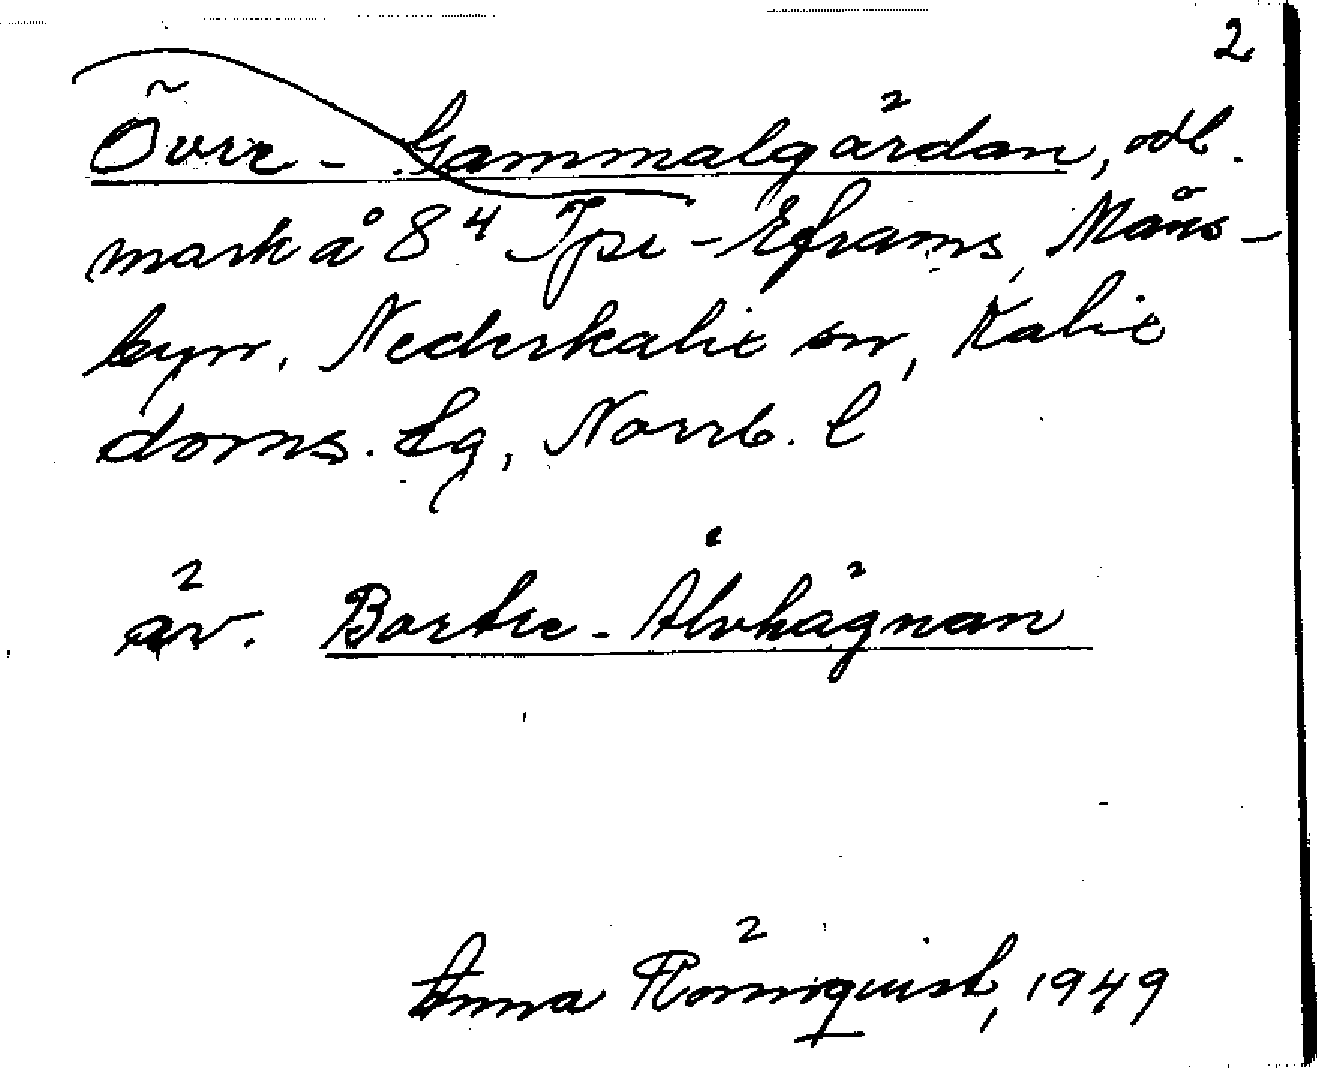 2
Övre-Gammalgärdan, odl.
mark å 8⁴ Ipe-Eframs, Måns-
byn, Nederkalix sn, Kalix
doms. lg, Norrb. l
äv. Bortre-Älvhägnan
Anna Rönnquist, 1949